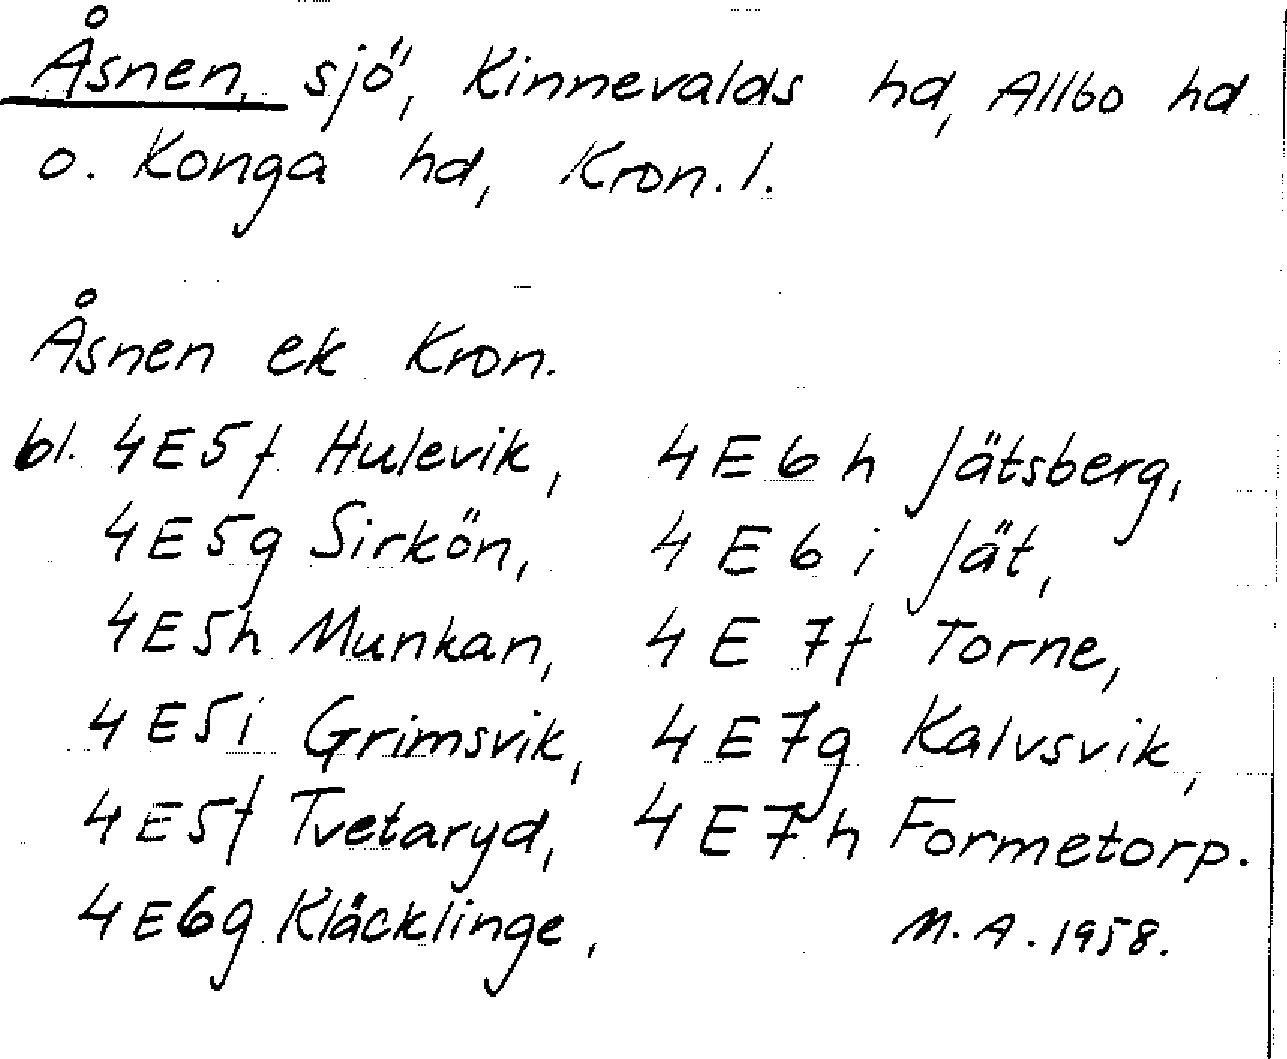 Åsnen, sjö, Kinnevalds hd, Allbo hd
o. Konga hd, Kron. l.
Åsnen ek Kron.
bl. 4E5f Hulevik, 4E6h Jätsberg,
4E5g Sirkön, 4E6i Jät,
4E5h Munkan, 4E7f Torne,
4E5i Grimsvik, 4E7g Kalvsvik,
4E5f Tvetaryd, 4E7h Formetorp.
4E6g Kläcklinge, M.A. 1958.